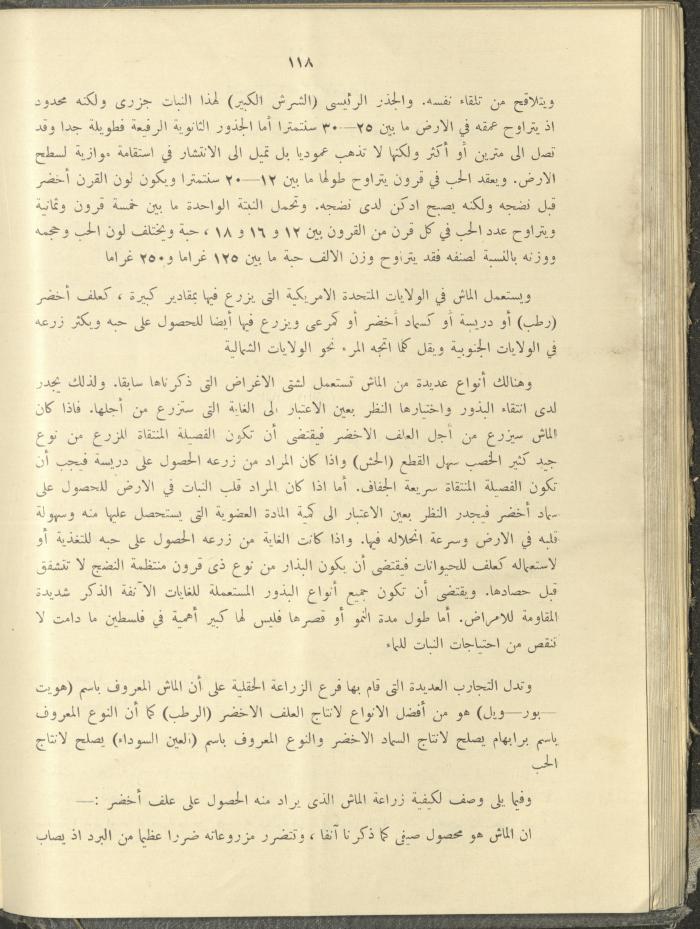 ١١٨
ويتلاقح من تلقاء نفسه. والجذر الرئيسى (الشرش الكبير) لهذا النبات جزرى ولكنه محدود
اذ يتراوح عمقه في الارض ما بين ٢٥—٣٠ سنتمترا أما الجذور الثانوية الرفيعة فطويلة جدا وقد
تصل الى مترين أو أكثر ولكنها لا تذهب عموديا بل تميل الى الانتشار في استقامة موازية لسطح
الارض. ويعقد الحب في قرون يتراوح طولها ما بين ١٢—٢٠ سنتمترا ويكون لون القرن أخضر
قبل نضجه ولكنه يصبح ادكن لدى نضجه. وتحمل النبتة الواحدة ما بين خمسة قرون وثمانية
ويتراوح عدد الحب في كل قرن من القرون بين ١٢ و ١٦ و ١٨ ، حبة ويختلف لون الحب وحجمه
ووزنه بالنسبة لصنفه فقد يتراوح وزن الالف حبة ما بين ١٢٥ غراما و٢٥٠ غراما
ويستعمل الماش في الولايات المتحدة الامريكية التى يزرع فيها بمقادير كبيرة ، كعلف أخضر
(رطب) أو دريسة أو كسماد أخضر أو كمرعى ويزرع فيها أيضا للحصول على حبه ويكثر زرعه
في الولايات الجنوبية ويقل كما اتجه المرء نحو الولايات الشمالية
وهنالك أنواع عديدة من الماش تستعمل لشتى الاغراض التى ذكرناها سابقا. ولذلك يجدر
لدى انتقاء البذور واختيارها النظر بعين الاعتبار الى الغاية التى ستزرع من أجلها. فاذا كان
الماش سيزرع من أجل العلف الاخضر فيقتضى أن تكون الفصيلة المنتقاة للزرع من نوع
جيد كثير الخصب سهل القطع (الحش) واذا كان المراد من زرعه الحصول على دريسة فيجب أن
تكون الفصيلة المنتقاة سريعة الجفاف. أما اذا كان المراد قلب النبات في الارض للحصول على
سماد أخضر فيجدر النظر بعين الاعتبار الى كمية المادة العضوية التى يستحصل عليها منه وسهولة
قلبه في الارض وسرعة انحلاله فيها. واذا كانت الغاية من زرعه الحصول على حبه للتغذية أو
لاستعماله كعلف للحيوانات فيقتضى أن يكون البذار من نوع ذى قرون منتظمة النضج لا تتشقق
قبل حصادها. ويقتضى أن تكون جميع أنواع البذور المستعملة للغايات الآنفة الذكر شديدة
المقاومة للامراض. أما طول مدة النمو أو قصرها فليس لها كبير أهمية في فلسطين ما دامت لا
تنقص من احتياجات النبات للماء
وتدل التجارب العديدة التى قام بها فرع الزراعة الحقلية على أن الماش المعروف باسم (هويت
—بور—ويل) هو من أفضل الانواع لانتاج العلف الاخضر (الرطب) كما أن النوع المعروف
باسم برابهام يصلح لانتاج السماد الاخضر والنوع المعروف باسم (العين السوداء) يصلح لانتاج
الحب
وفيما يلى وصف لكيفية زراعة الماش الذى يراد منه الحصول على علف أخضر :—
ان الماش هو محصول صيفى كما ذكرنا آنفا ، وتتضرر مزروعاته ضررا عظيما من البرد اذ يصاب